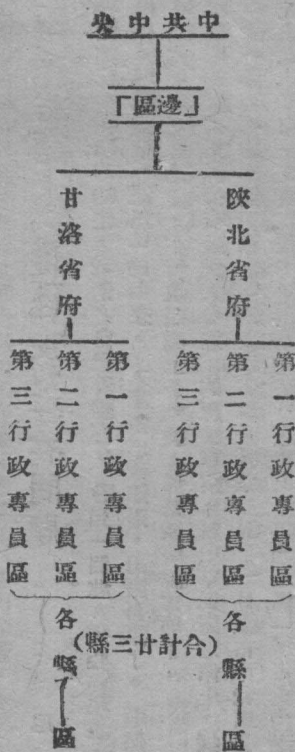 中共中央
「邊區」
陝北省府
第一行政專員區
第二行政專員區
第三行政專員區
各縣
區
甘洛省府
第一行政專員區
第二行政專員區
第三行政專員區
各縣
區
(合計廿三縣)